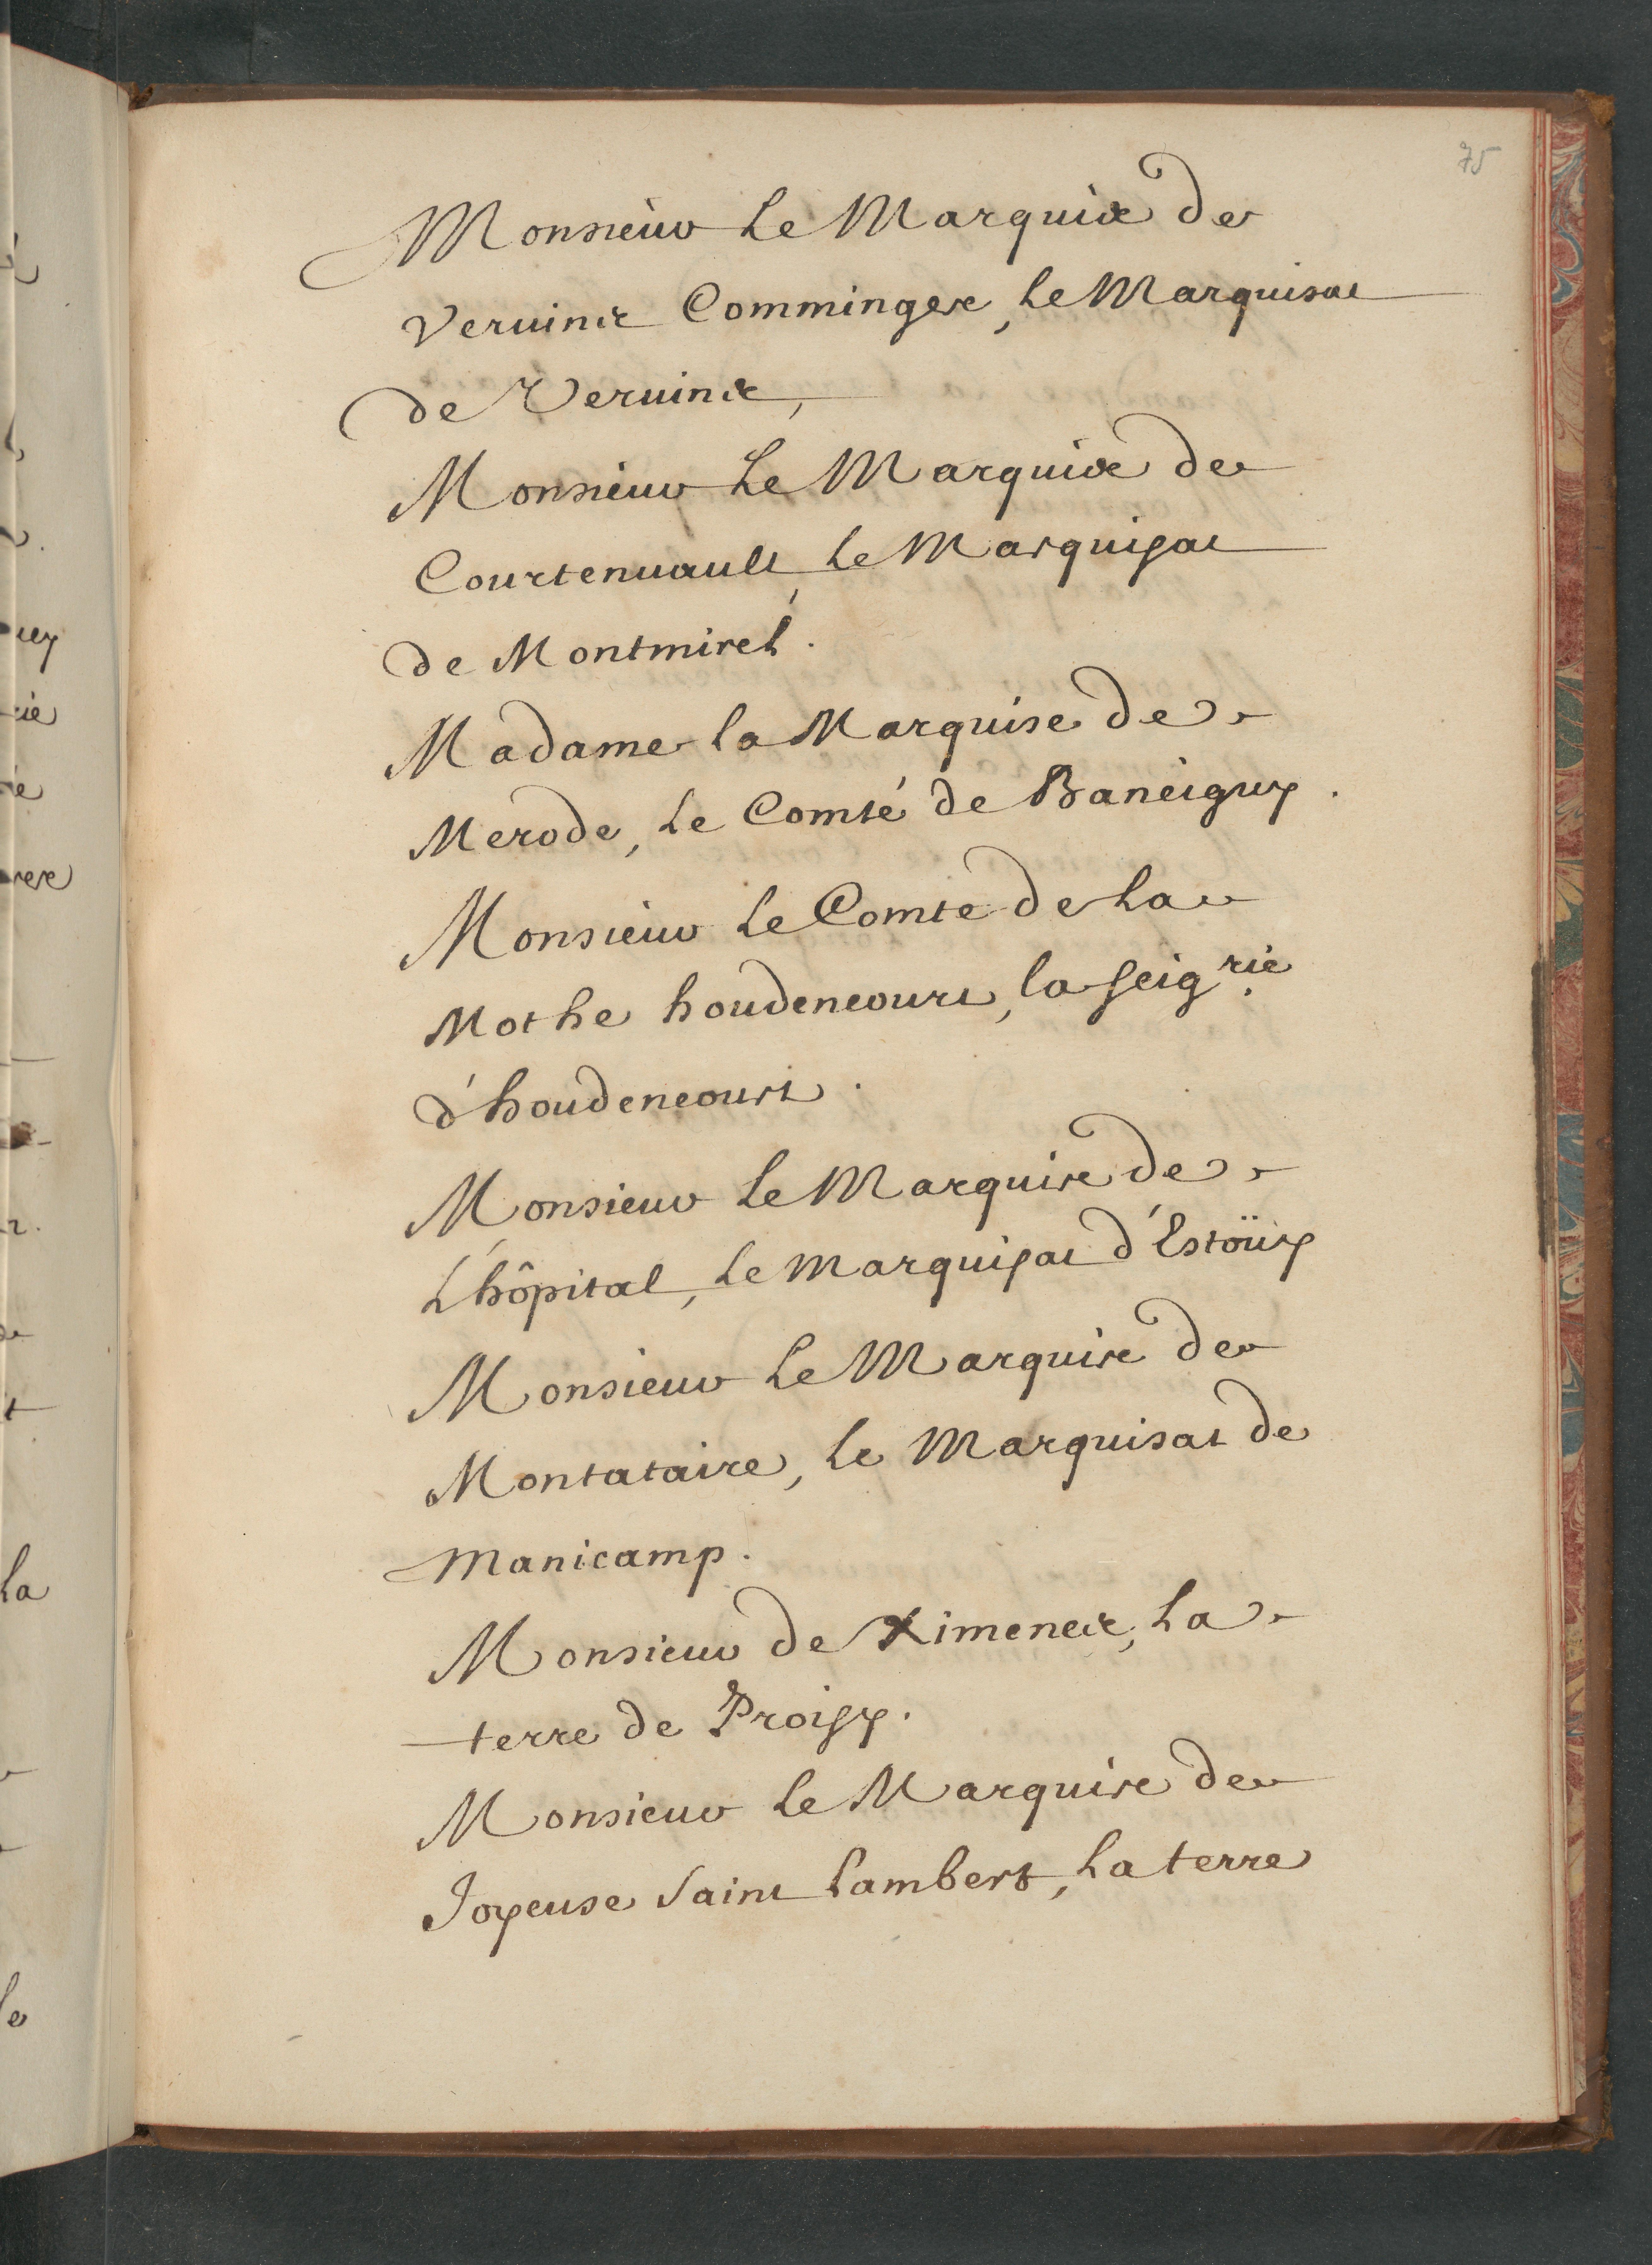 75
Monsieur Le Marquis de
Veruins Comminges, Le Marquisat
de Veruins,
Monsieur Le Marquis de
Courtenuault, Le Marquisat
de Montmirel.
Madame la Marquise de
Merode, Le Comté de Baneigny.
Monsieur Le Comte de La
Mothe houdencourt, la Seig.rie
d'houdencourt.
Monsieur Le Marquis de
L'hôpital, Le Marquisat d'Estoüy
Monsieur Le Marquis de
Montataire, Le Marquisat de
Manicamp.
Monsieur de Ximenes, La
terre de Proisy.
Monsieur Le Marquis de
Joyeuse Saint Lambert, La terre